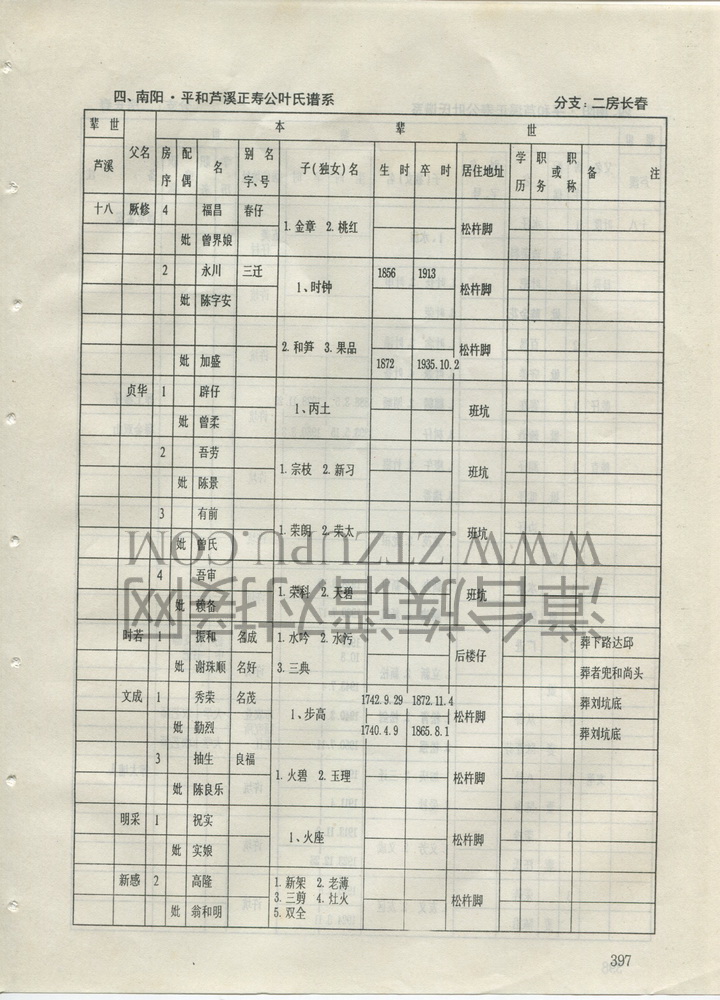 四、南阳·平和芦溪正寿公叶氏谱系 分支：二房长春
辈世 本 辈 世
芦溪 父名 房序 配偶 名 别名字、号 子(独女)名 生时 卒时 居住地址 学历 职务或职称 备 注
十八 厥修 4 福昌 春仔 1.金章 2.桃红 松柞脚
妣 曾界娘
2 永川 三迁 1、时钟 1856 1913 松柞脚
妣 陈字安
2.和笋 3.果品 松柞脚
妣 加盛 1872 1935.10.2
贞华 1 辟仔 1、丙土 班坑
妣 曾柔
2 吾劳 1.宗枝 2.新习 班坑
妣 陈景
3 有前 1.荣朗 2.荣太 班坑
妣 曾氏
4 吾审 1.荣科 2.天碧 班坑
妣 赖备
时若 1 振和 名成 1.水吟 2.水污 后楼仔 葬下路达邱
妣 谢珠顺 名好 3.三典 葬者兜和尚头
文成 1 秀荣 名茂 1、步高 1742.9.29 1872.11.4 松柞脚 葬刘坑底
妣 勤烈 1740.4.9 1865.8.1 葬刘坑底
3 抽生 良福 1.火碧 2.玉理 松柞脚
妣 陈良乐
明采 1 祝实 1、火座 松柞脚
妣 实娘
新感 2 高隆 1.新架 2.老薄 松柞脚
3.三剪 4.灶火
妣 翁和明 5.双全
397
漳台族谱对接网
WWW.ZTZUPU.COM